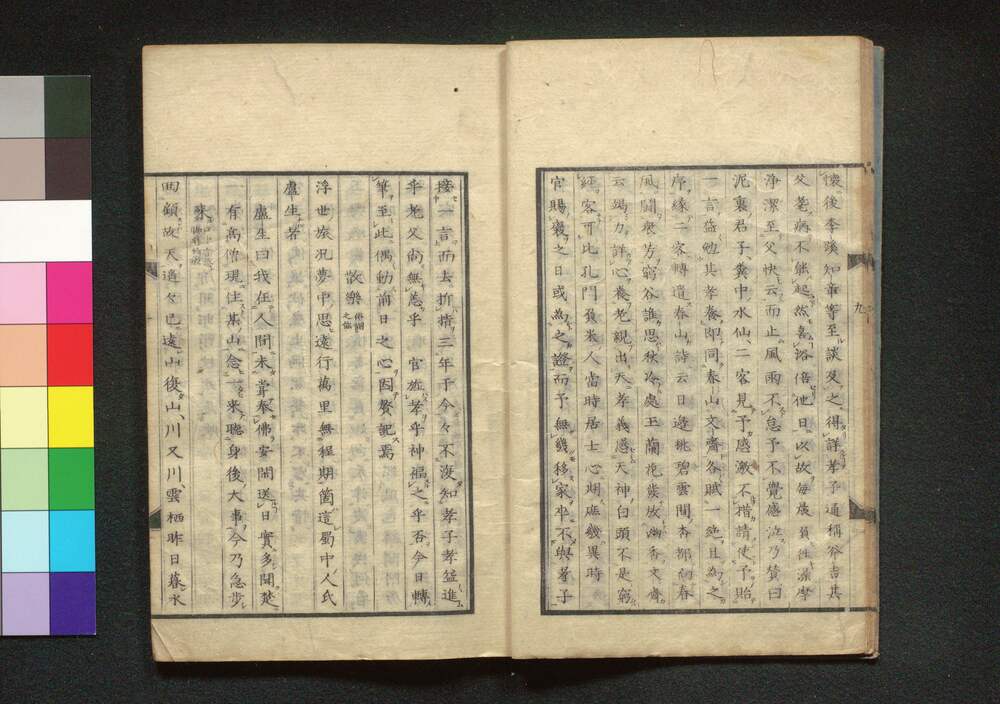 懐後李蹊知章等至談及之得詳孝子通稱俗吉其
父耄病不能起然喜浴倍他日以故毎歳負性澡學
浄潔至父快云而止風雨不怠予不覺感泣乃賛曰
泥裏君子糞中水仙二客見予感激不措請使予貽
一言盛勉其孝養即同春山文齋各賦一絶且為之
序縁二客轉遺春山詩云日邊桃碧雲間杏都向春
風闘麗芳窮谷誰思秋冷處玉蘭挽歲放幽香文齋
云竭力詳心養老親出天孝義感天神白頭不是窮
經客可比孔門負米人當時居士心期庶幾異時
官賜穀之日或為之證而予無幾移家卒不與孝子
九
接一言而去折指三年于今々不渡知孝子孝益進
乎老父尚無恙乎官旌孝乎神福之乎否今日轉
筆至此偶動前日之心因贅記焉
散樂俳謂之儛
浮世旅況夢中思遠行萬里無程期箇這蜀中人氏
盧生者
盧生曰我在人間未嘗奉佛安閑送日實多聞楚
有高僧現住某山念一來聴身後大事今乃急步
來
回顧故天過々已遠山復山川又川雲栖昨日暮水